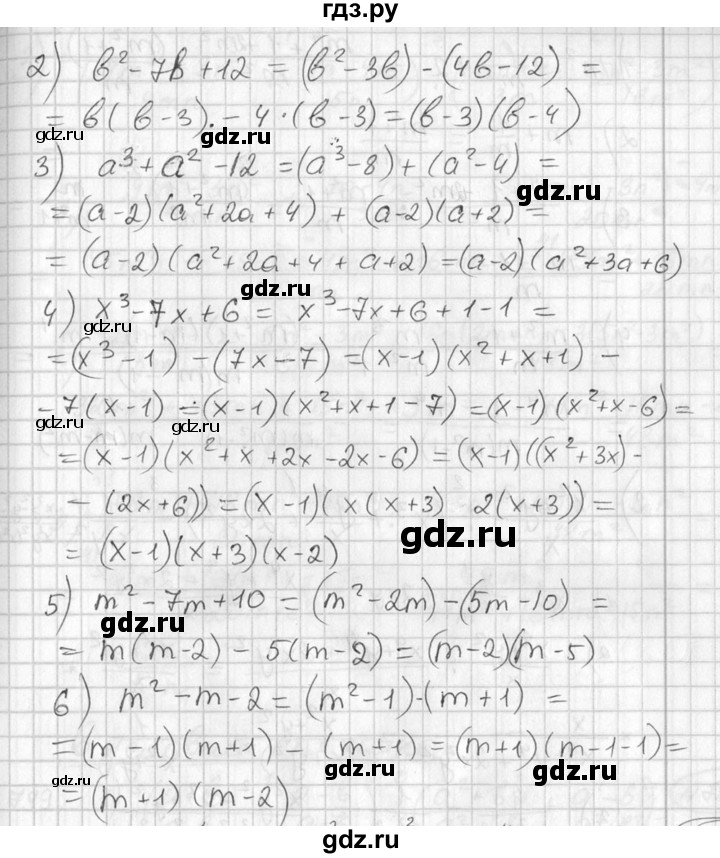 гдз.ру
2) b² - 7b + 12 = (b² - 3b) - (4b - 12) =
= b(b - 3) - 4·(b - 3) = (b - 3)(b - 4)
gdz.ru
gdz.ru
3) a³ + a² - 12 = (a³ - 8) + (a² - 4) =
gdz.ru
= (a - 2)(a² + 2a + 4) + (a - 2)(a + 2) =
gdz.ru
= (a - 2)(a² + 2a + 4 + a + 2) = (a - 2)(a² + 3a + 6)
gdz.ru
4) x³ - 7x + 6 = x³ - 7x + 6 + 1 - 1 =
gdz.ru
= (x³ - 1) - (7x - 7) = (x - 1)(x² + x + 1) -
- 7(x - 1) = (x - 1)(x² + x + 1 - 7) = (x - 1)(x² + x - 6) =
gdz.ru
gdz.ru
= (x - 1)(x² + x + 2x - 2x - 6) = (x - 1)((x² + 3x) -
- (2x + 6)) = (x - 1)(x(x + 3) 2(x + 3)) =
gdz.ru
= (x - 1)(x + 3)(x - 2)
5) m² - 7m + 10 = (m² - 2m) - (5m - 10) =
gdz.ru
= m(m - 2) - 5(m - 2) = (m - 2)(m - 5)
6) m² - m - 2 = (m² - 1) - (m + 1) =
= (m - 1)(m + 1) - (m + 1) = (m + 1)(m - 1 - 1) =
gdz.ru
gdz.ru
gdz.ru
= (m + 1)(m - 2)
gdz.ru